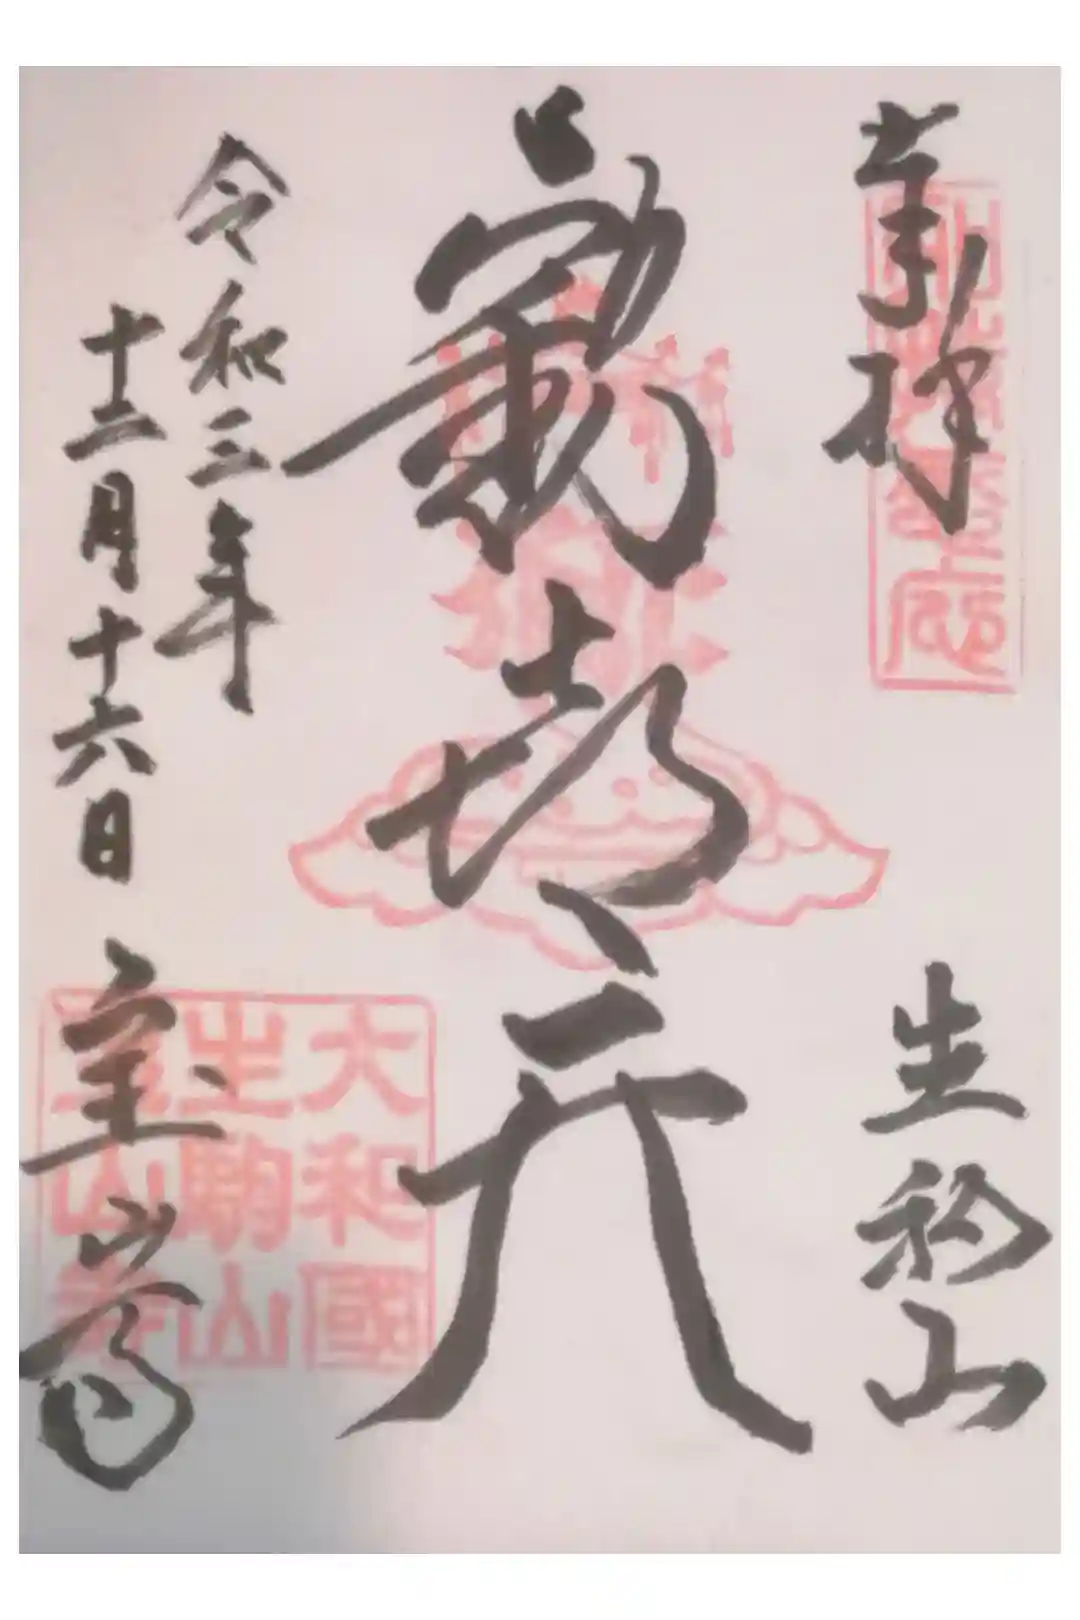 奉拝
生駒山
歓喜天
令和三年
十二月十六日
宝山寺
大和國
生駒山
寶山寺